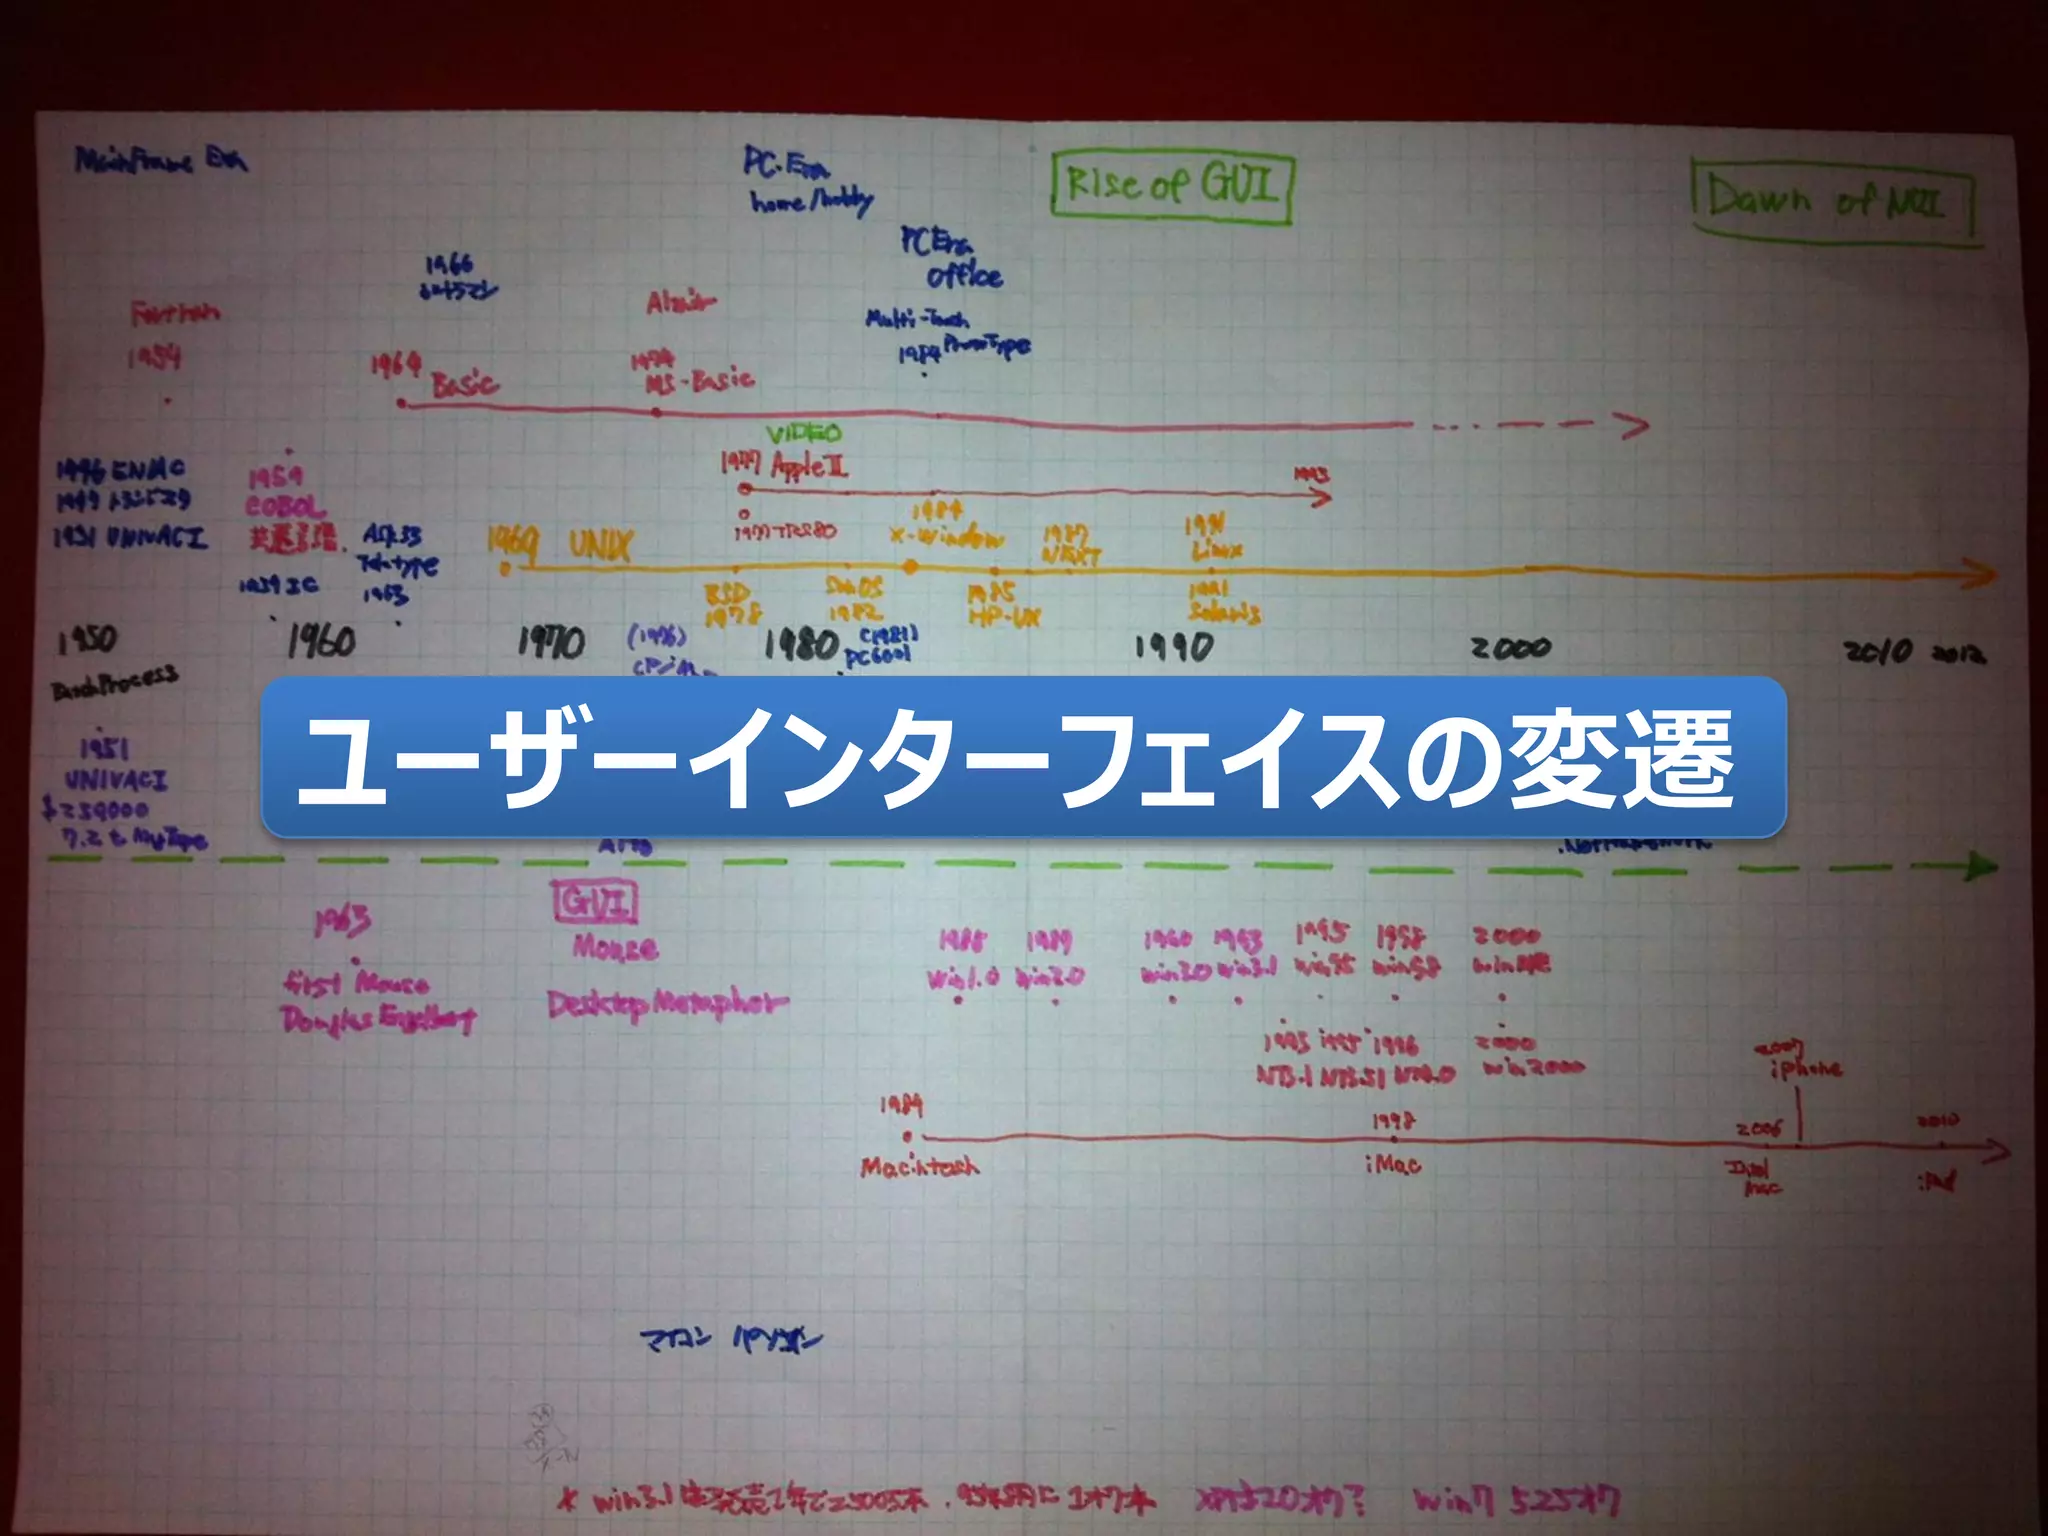 MainFrame Era
PC.Era
home/hobby
Rise of GUI
Dawn of NUI
PC Era
office
1966
ウルトラマン
Fortran
1954
1964
Basic
Altair
1974
MS-Basic
Multi-Touch
1984 ProtoType
VIDEO
1977 Apple II
1993
1977 TRS80
1946 ENIAC
1949 トランジスタ
1951 UNIVAC I
1959
COBOL
1959 IC
ASR33
Teletype
1963
1969 UNIX
1984
X-Window
1987
NEXT
1991
Linux
BSD
1978
SunOS
1982
1985
HP-UX
1991
Solaris
1950
1960
1970
(1976)
CP/M
1980
(1981)
PC6001
1990
2000
2010
2012
BatchProcess
ユーザーインターフェイスの変遷
1951
UNIVAC I
$259000
7.2t
1963
first Mouse
Douglas Engelbart
GUI
Mouse
Desktop Metaphor
1985
Win1.0
1989
Win2.0
1990
win3.0
1993
win3.1
1995
win95
1998
win98
2000
winME
1993
NT3.1
1995
NT3.51
1996
NT4.0
2000
win2000
2007
iPhone
1984
Macintosh
1998
iMac
2006
Intel
Mac
2010
マイコン パソコン
win7 525オク